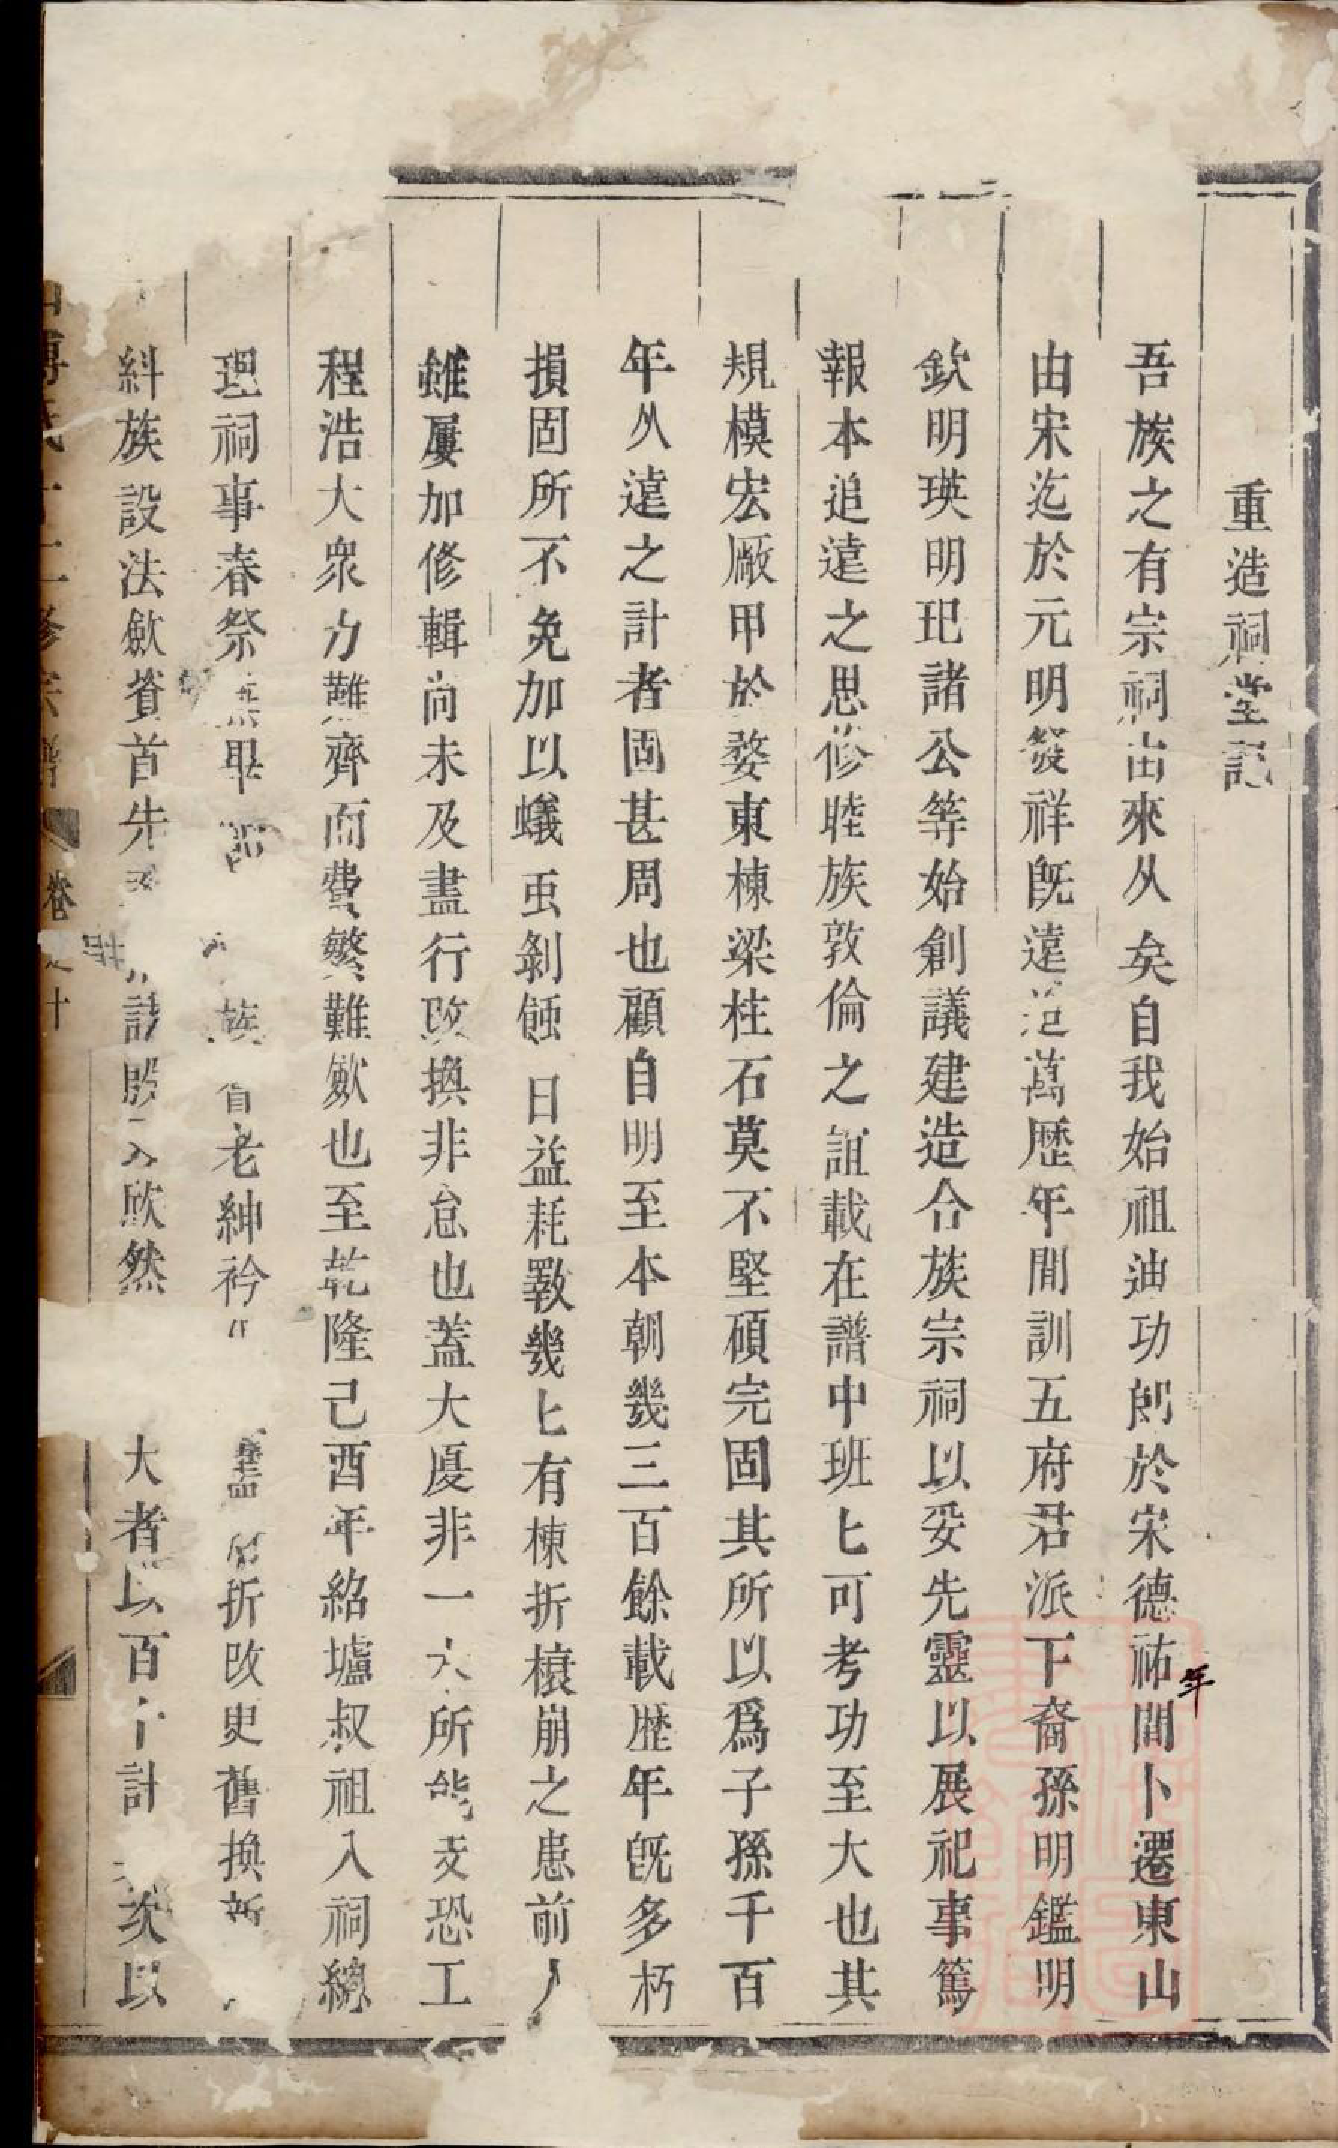 重造祠堂記
吾族之有宗祠由來从矣自我始祖迪功郎於宋德祐間卜遷東山
年
由宋迄於元明發祥旣遠迨萬歷年間訓五府君派下裔孫明鑑明
欽明瑛明玘諸公等始創議建造合族宗祠以妥先靈以展祀事篤
報本追遠之思修睦族敦倫之誼載在譜中班匕可考功至大也其
規模宏厰甲於婺東棟梁柱石莫不堅碩完固其所以爲子孫千百
年从遠之計者固甚周也顧自明至本朝幾三百餘載歷年旣多朽
損固所不免加以蟻虫剝蝕日益耗斁幾匕有棟折榱崩之患前人
雖屢加修輯尚未及盡行改換非怠也蓋大厦非一木所能支恐工
程浩大衆力難齊而費繁難歛也至乾隆己酉年紹墟叔祖入祠總
理祠事春祭 畢 族 老紳衿 折改更舊換新
斜族設法歛貲首先 欣然 大者以百十計 次以
氏十二修宗譜 卷 十